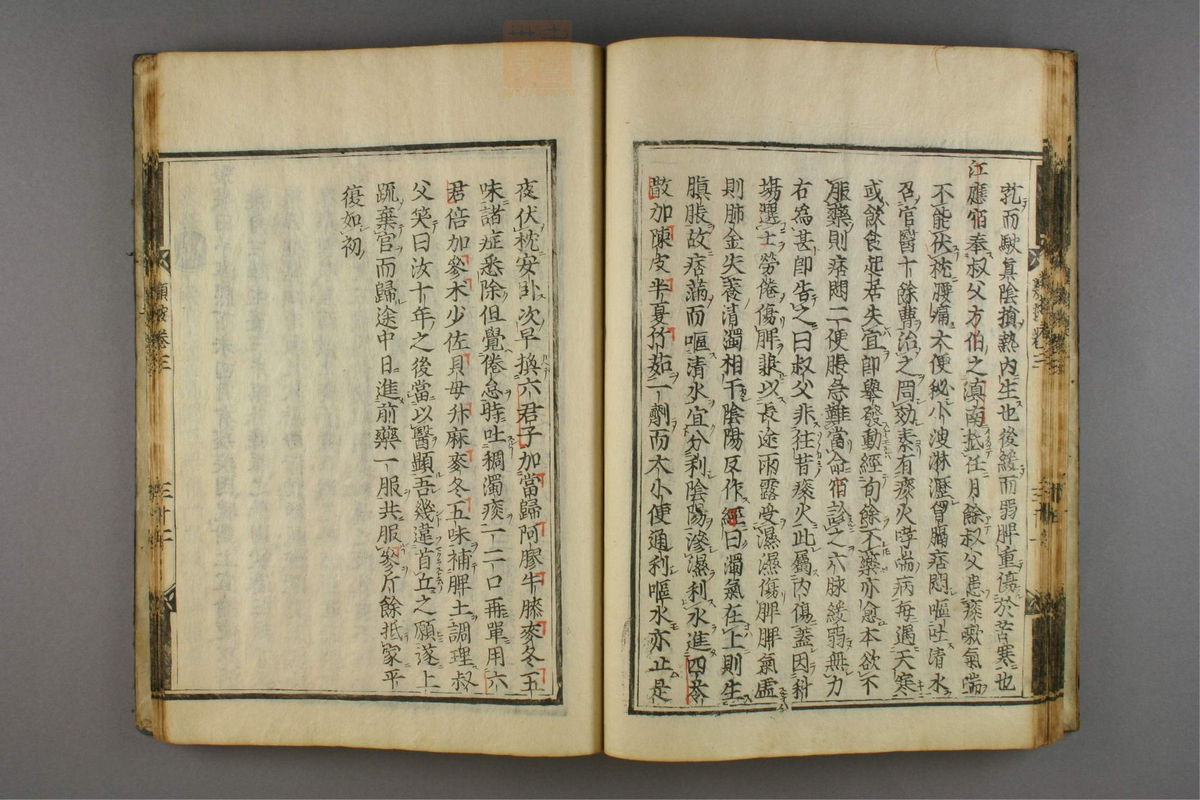 芤而駛真陰損熱内生也後緩而弱脾重傷於苦寒也
江應宿奉叔父方伯之滇南抵任月餘叔父患痰嗽氣喘
不能伏枕腰痛大便秘小溲淋瀝胷膈痞悶嘔吐清水
召官醫十餘曹治之罔効素有痰火哮喘病每遇天寒
或飲食起居失宜即舉發動經旬餘不藥亦愈本欲不
服藥則痞悶二便脹急難當命宿診之六脉緩弱無力
右為甚即告之曰叔父非徃昔痰火此屬内傷蓋因科
場選士勞倦傷脾兼以長途雨露受濕濕傷脾脾氣虚
則肺金失養清濁相干陰陽反作經曰濁氣在上則生
䐜脹故痞滿而嘔清水宜分利陰陽滲濕利水進四苓
散加陳皮半夏竹茹一劑而大小便通利嘔水亦止是
夜伏枕安卧次早換六君子加當歸阿膠牛膝麥冬五
味諸症悉除但覺倦怠時吐稠濁痰一二口再單用六
君倍加參术少佐貝母升麻麥冬五味補脾土調理叔
父笑曰汝十年之後當以醫顯吾幾違首丘之願遂上
疏棄官而歸途中日進前藥一服共服參斤餘抵家平
復如初
類按卷三
三十二